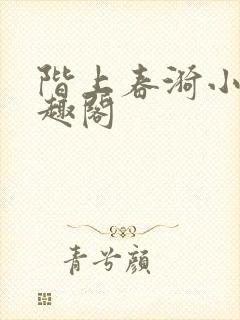 階上春漪小
趣閣
青兮顏